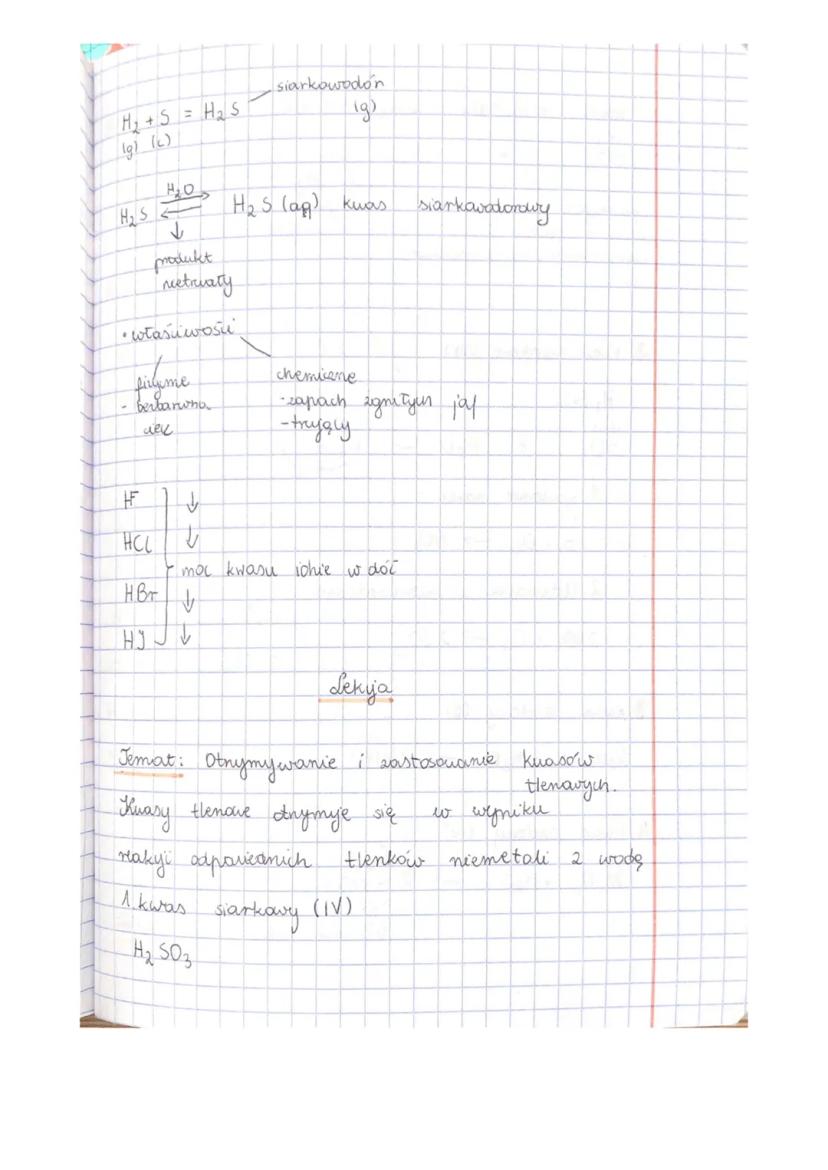 siarkowodór
H₂ + S = H₂S (g)
(g) (c)
H₂O
H₂S ⇄ H₂S (aq) kwas siarkowodorowy
↓
produkt
nietrwały
• właściwości
fizyczne
- bezbarwna
ciecz
chemiczne
- zapach zgniłych jaj
- trujący
HF ↓
HCl ↓
moc kwasu rośnie w dół
HBr ↓
HJ ↓
Lekcja
Temat: Otrzymywanie i zastosowanie kwasów
tlenowych.
Kwasy tlenowe otrzymuje się w wyniku
reakcji odpowiednich tlenków niemetali z wodą
1. kwas siarkowy (IV)
H₂SO₃